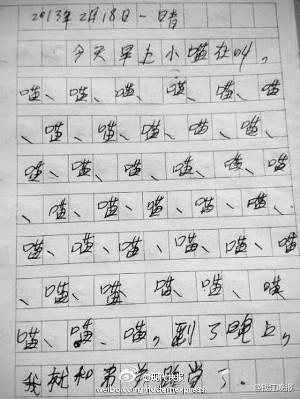 2013年2月18日 一 晴
今天早上小喵在叫，
喵、喵、喵、喵、喵、喵
、喵、喵、喵、喵、喵、
喵、喵、喵、喵、喵、喵
、喵、喵、喵、喵、喵、
喵、喵、喵、喵、喵、喵
、喵、喵、喵、喵、喵
喵、喵、喵，到了晚上，
我就和弟学
@现代快报
weibo.com/modernexpress
@钱江晚报